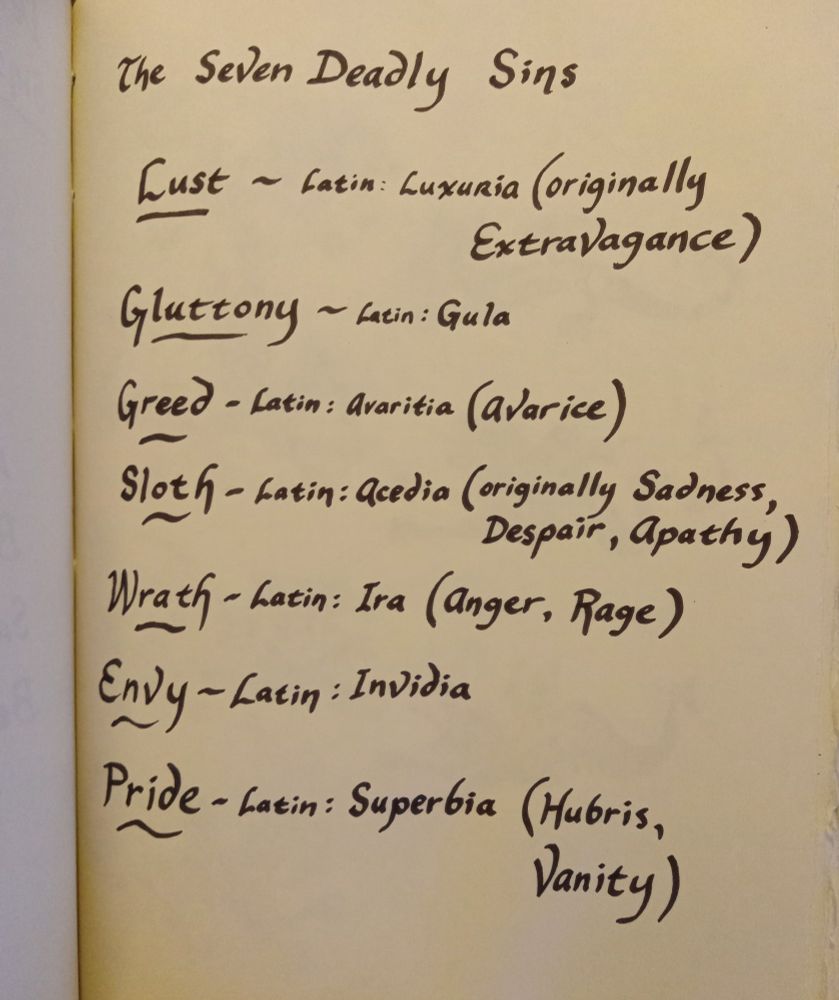 The Seven Deadly Sins
Lust ~ Latin: Luxuria (originally
Extravagance)
Gluttony ~ Latin: Gula
Greed - Latin: Avaritia (Avarice)
Sloth - Latin: Acedia (originally Sadness,
Despair, Apathy)
Wrath - Latin: Ira (Anger, Rage)
Envy ~ Latin: Invidia
Pride - Latin: Superbia (Hubris,
Vanity)